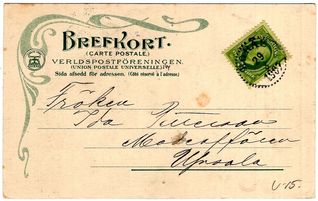 BREFKORT.
(CARTE POSTALE)
VERLDSPOSTFÖRENINGEN.
(UNION POSTALE UNIVERSELLE)
Sida afsedd för adressen. (Côté réservé à l'adresse)
Fröken
Ida
Modeaffären
Upsala
U-15.